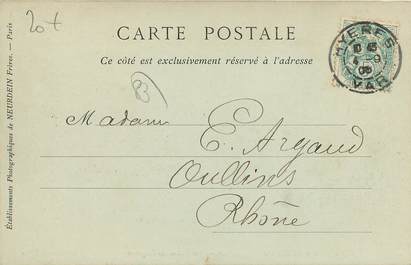 20+
CARTE POSTALE
Ce côté est exclusivement réservé à l'adresse
HYERES
VAR
83
Madame
E. Argaud
Oullins
Rhône
Établissements Photographiques de NEURDEIN Frères. — Paris